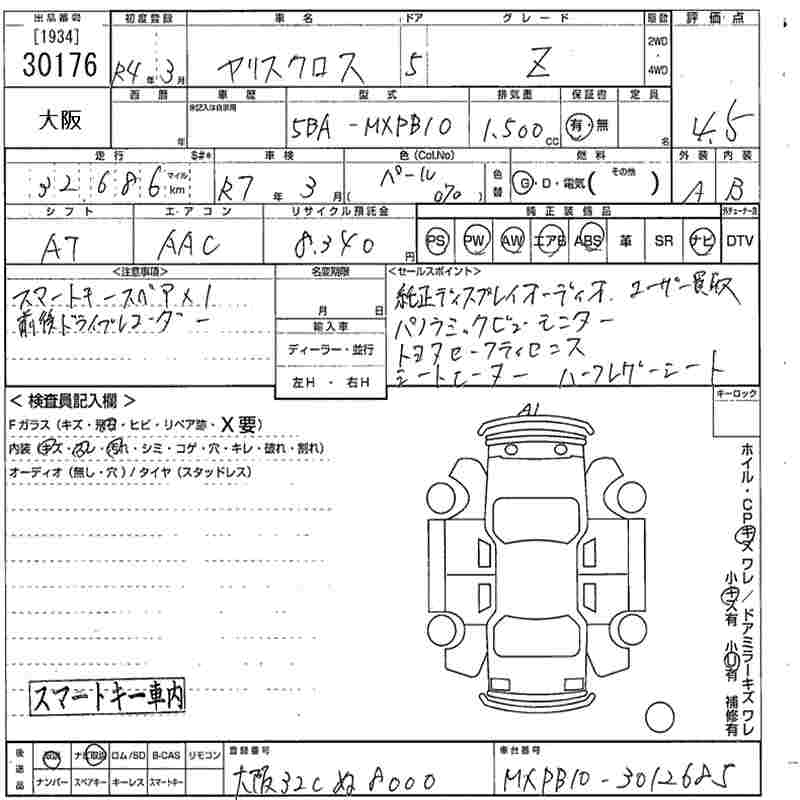 出品番号 初度登録 車名 ドア グレード 駆動 評価点
[1934]
30176 R4年 3月 ヤリスクロス 5 Z 2WD・4WD 4.5
大阪 西暦 年 車歴 型式 排気量 保証書 定員
未記入は自家用
5BA-MXPB10 1.500cc 有・無 名
走行 S#* 車検 色(Col.No) 燃料 外装 内装
32,686 マイル km R7年 3月 パール ( 070 ) 色替 G・D・電気( その他 ) A B
シフト エアコン リサイクル預託金 純正装備品 外チューナー含
AT AAC 8.340円 PS PW AW エアB ABS 革 SR ナビ DTV
<注意事項> 名変期限 <セールスポイント>
スマートキースペア×1
前後ドライブレコーダー
月 日
輸入車
ディーラー・並行
左H・右H
純正ディスプレイオーディオ. ユーザー買取
パノラミックビューモニター
トヨタセーフティセンス
シートヒーター ハーフレザーシート
<検査員記入欄>
Fガラス(キズ・飛石・ヒビ・リペア跡・X要)
内装(キズ・スレ・汚れ・シミ・コゲ・穴・キレ・破れ・割れ)
オーディオ(無し・穴)/タイヤ(スタッドレス)
A1
キーロック
ホイル・CPキズ ワレ/ドアミラーキズ ワレ
小キズ有 小U有 補修有
スマートキー車内
後送品 取説 ナビ取説 ロム/SD B-CAS リモコン
ナンバー スペアキー キーレス スマートキー
登録番号 車台番号
大阪32C ぬ 8000 MXPB10-3012685